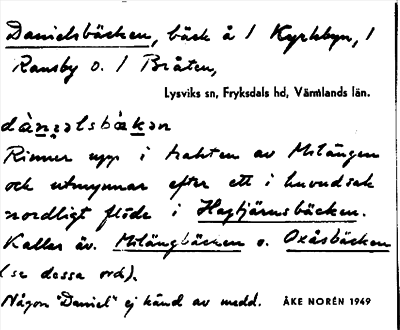 Danielsbäcken, bäck å / Kyrkbyn, /
Ransby o. / Bråten,
Lysviks sn, Fryksdals hd, Värmlands län.
Rinner upp i trakten av Milängen
och utmynnar efter ett i huvudsak
nordligt flöde i Hagtjärnsbäcken.
Kallas äv. Milängbäcken o. Oxåsbäcken
(se dessa ord).
Någon "Daniel" ej känd av medd. ÅKE NORÉN 1949